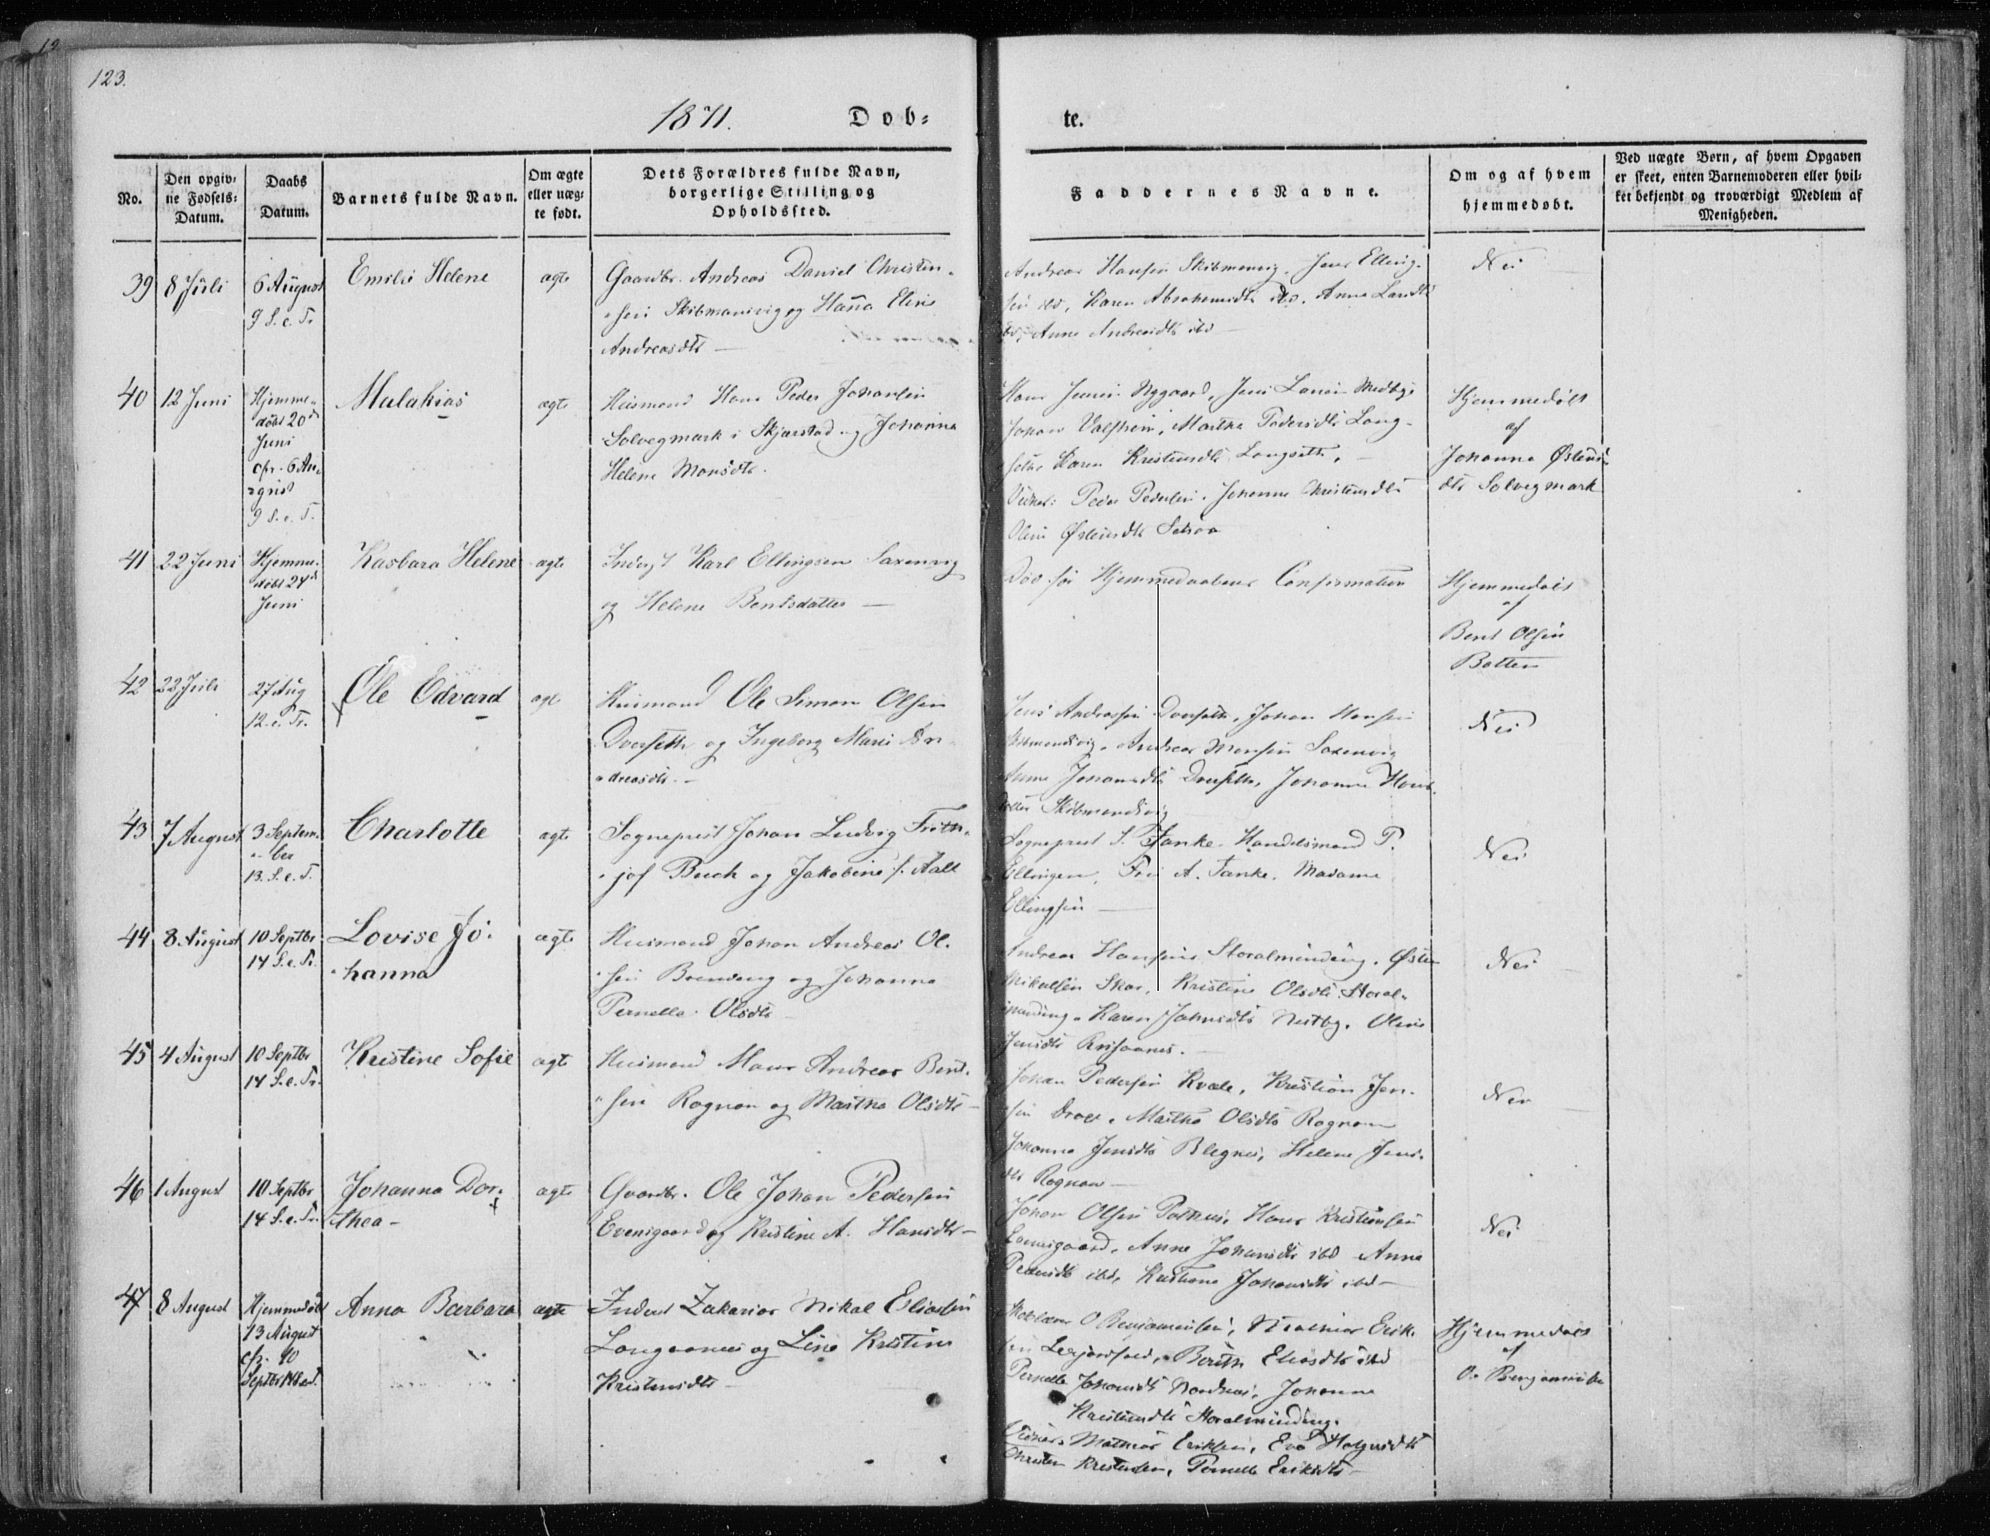 123.
1871.
Døb-
te.
No.
Den opgiv-
ne Fødsels-
Datum.
Daabs
Datum.
Barnets fulde Navn.
Om ægte
eller uæg-
te født.
Dets Forældres fulde Navn,
borgerlige Stilling og
Opholdssted.
Faddernes Navne.
Om og af hvem
hjemmedøbt.
Ved uægte Børn, af hvem Opgaven
er skeet, enten Barnemoderen eller hvil-
ket bekjendt og troværdigt Medlem af
Menigheden.
39
8 Juli
6 August
9 S. e. Tr.
Emilie Helene
ægte
Gaardbr. Andreas Daniel Christen-
sen Skibmansvig og Hanna Elen
Andreasdtr
Andreas Hansen Skibmensvig, Jens Elling-
sen ibd, Karen Abrahamsdtr ibd, Anna
ibd, Anne Andreasdtr ibd
Nei
40
12 Juni
Hjemme-
døbt 20d
Juni
cfr. 6 Au-
gust
9 S. e. T.
Malakias
ægte
Husmand Hans Peder Johansen
Solvegmark i Skjærstad og Johanna
Helene Monsdtr.
Hans Jensen Nygaard, Jens Larsen Medby,
Johan Valseth, Martha Pedersdtr Lang-
seth, Karen Kristensdtr Langseth,
Vidner: Peder Pedersen, Johanne Christensdtr
Oline Østensdtr Setsaa
Hjemmedøbt
af
Johanna Østens-
dtr Solvegmark
41
22 Juni
Hjemme-
døbt 24d
Juni
Kasbara Helene
ægte
Inderst Karl Ellingsen Saxenvig
og Helene Bentsdatter
Død før Hjemmedaabens Confirmation
Hjemmedøbt
af
Bent Olsen
Botten
42
22 Juli
27 Aug
12. e. Tr.
Ole Edvard
ægte
Husmand Ole Simon Olsen
Dverseth og Ingeborg Marie An-
dreasdtr.
Jens Andreasen Dverseth, Johan Hansen
Skibmensvig, Andreas Monsen Saxenvig
Anne Johansdtr Dverseth, Johanna Hans-
datter Skibmensvig
Nei
43
7 August
3 Septem-
ber
13. S. e. T.
Charlotte
ægte
Sogneprest Johan Ludvig Frith-
jof Buch og Jakobine f. Aall
Sogneprest S. Tanke. Handelsmand P.
Ellingsen, Fru A. Tanke. Madame
Ellingsen
Nei
44
8 August
10 Septbr
14 S. e. Tr.
Lovise Jo-
hanna
ægte
Husmand Johan Andreas Ol-
sen Brendeng og Johanna
Pernella Olsdtr
Andreas Hansen Storalminding, Østen
Mikalsen Skar, Kristine Olsdtr Storal-
minding, Karen Johnsdtr Nestby, Oline
Jensdtr
Nei
45
4 August
10 Septbr
14 S. e. Tr.
Kristine Sofie
ægte
Husmand Hans Andreas Bent-
sen Rognan og Martha Olsdtr
Johan Pedersen Kvale, Kristian Jen-
sen Drage, Martha Olsdtr Rognan
Johanna Jensdtr, Helene Jens-
dtr Rognan
Nei
46
1 August
10 Septbr
14 S. e. Tr.
Johanna Dor-
thea
ægte
Gaardbr. Ole Johan Pedersen
Evensgaard og Kristine A. Hansdtr
Johan Olsen, Hans Kristensen
Evensgaard, Anne Johansdtr ibd Anna
Pedersdtr ibd, Kristiane Johansdtr ibd
Nei
47
8 August
Hjemmedøbt
13 August
cfr. 10
Septbr
Anna Barbara
ægte
Inderst Zakarias Mikal Eliassen
Langaanes og Line Kristine
Kristensdtr
Skolelærer O Benjaminsen, Mathias Erik-
sen, Berith Eliasdtr ibd
Pernelle Johansdtr Nordnes, Johanna
Kristensdtr Storalminding.
Vidner. Mathias Eriksen, Eva Holgersdtr
Christen Kristensen, Pernelle Eriksdtr
Hjemmedøbt
af
O. Benjaminsen